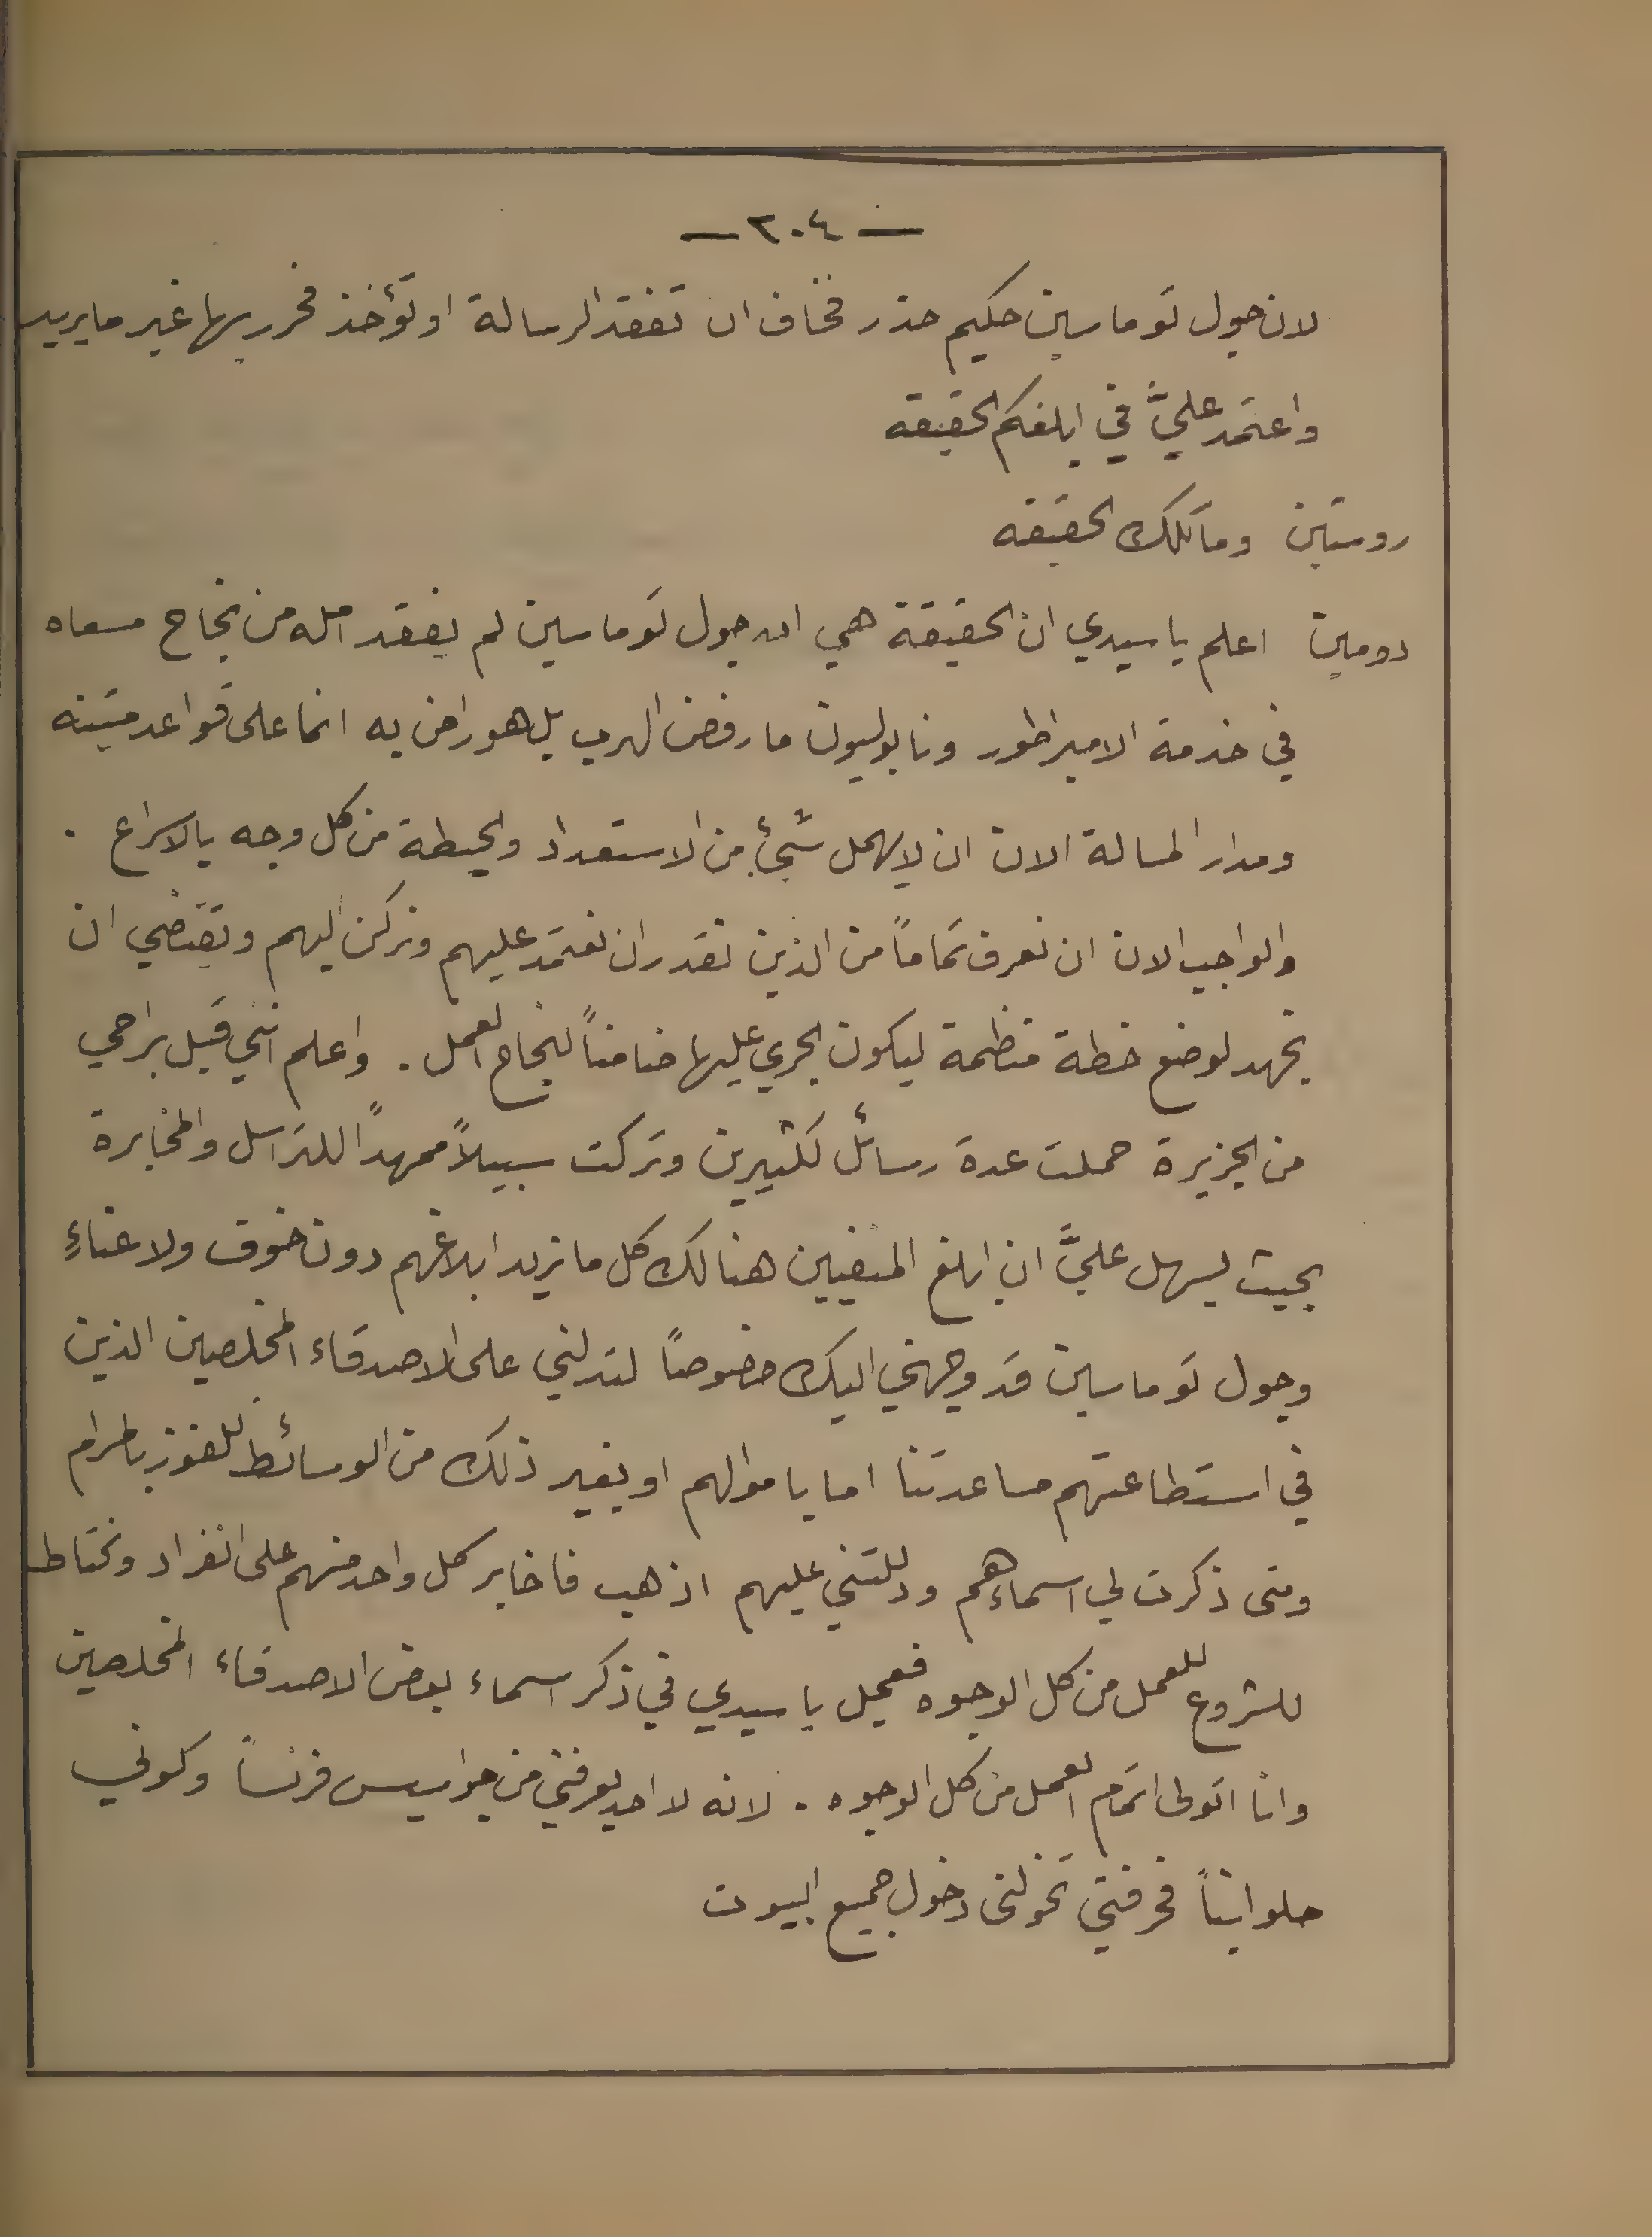 — ٢٠٤ —
لان جول توماسين حكيم حذر فخاف ان تفقد الرسالة او تؤخذ فحرر بها غير ما يريد
واعتمد عليَّ في ابلغكم الحقيقه
روستين وما تلك الحقيقه
دومين اعلم يا سيدي ان الحقيقة هي ان جول توماسين لم يفقد امله من نجاح مسعاه
في خدمة الامبراطور ونابوليون ما رفض الهرب بل هو راض به انما على قواعد متينه
ومدار المسالة الان ان لا يهمل شيئ من الاستعداد والحيطة من كل وجه بالاسراع .
والواجب الان ان نعرف تماماً من الذين نقدر ان نعتمد عليهم ونركن اليهم وتقتضي ان
نجهد لوضع خطة منظمة ليكون الجري عليها ضامناً لنجاح العمل . واعلم انني قبل براحي
من الجزيرة حملت عدة رسائل لكثيرين وتركت سبيلاً ممهداً للتراسل والمخابرة
بحيث يسهل عليَّ ان ابلغ المنفيين هنالك كل ما نريد ابلاغهم دون خوف ولا عناءٍ
وجول توماسين قد وجهني اليك خصوصاً لتدلني على الاصدقاء المخلصين الذين
في استطاعتهم مساعدتنا اما باموالهم او بغير ذلك من الوسائط للفوز بالمرام
ومتى ذكرت لي اسماءهم ودللتني عليهم اذهب فاخابر كل واحد منهم على انفراد ونحتاط
للشروع للعمل من كل الوجوه فعجل يا سيدي في ذكر اسماء بعض الاصدقاء المخلصين
وانا اتولى اتمام العمل من كل الوجوه . لانه لا احد يعرفني من جواسيس فرنسا وكوني
حلوانياً فحرفتي تخولني دخول جميع البيوت